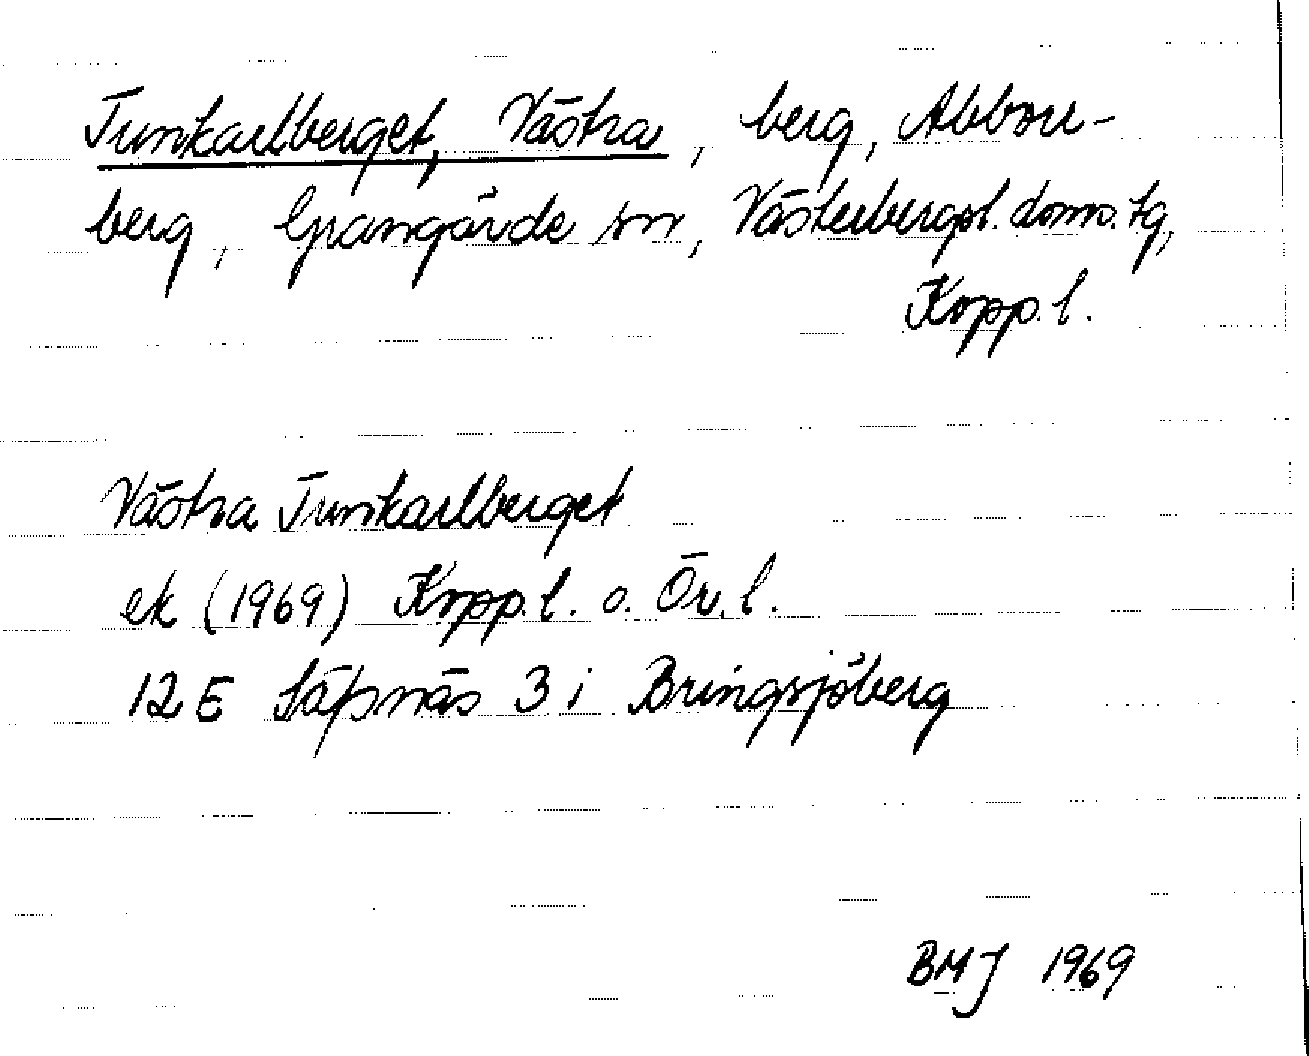 Trinkarlberget, Västra, berg, Abborr-
berg, Grangärde sn, Västerbergsl. doms. tg,
Kopp. l.
Västra Trinkarlberget
ek (1969) Kopp. l. o. Ör. l.
12 E Säfsnäs 3 i Bringsjöberg
BMJ 1969